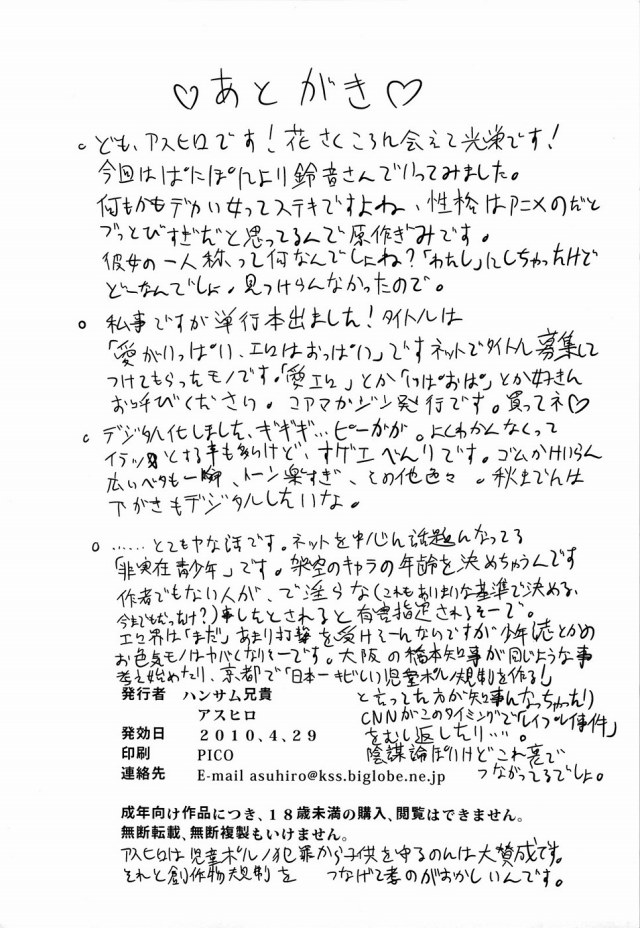 ♡あとがき♡
○ども、アスヒロです!花さくころに会えて光栄です!
今回はぱにぽにより鈴音さんでいってみました。
何もかもデカい女ってステキですよね、性格はアニメのだと
ブっとびすぎだと思ってるんで原作ぎみです。
彼女の一人称って何なんでしょね?「わたし」にしちゃったけど
どーなんでしょ。見つけらんなかったので。
○私事ですが単行本出ました!タイトルは
「愛がいっぱい、エロはおっぱい」ですネットでタイトル募集して
つけてもらったモノです。「愛エロ」とか「いぱおぱ」とか好きに
お呼びください。コアマガジン発行です。買ってネ♡
○デジタル化しました、ギギギ…ピーガガ。よくわかんなくって
イラッとする事も多いけど、すゲエべんりです。ゴムかけいらん
広いベタも一瞬、トーン楽すぎ、その他色々。秋止でんは
下がきもデジタルしたいな。
○……とてもヤな話です。ネットを中心に話題になってる
「非実在青少年」です。架空のキャラの年齢を決めちゃうんです
作者でもない人が、で淫らな(これもあいまいな基準で決める、
今までもだったけ?)事したとされると有害指定されるそーで。
エロ界は「まだ」あまり打撃を受けそーんないですが少年誌とかの
お色気モノはヤバくなりそーです。大阪の橋本知事が同じような事
考え始めたり、京都で「日本一キビしい児童ポルノ規制を作る!」
と言ってた方が知事んなっちゃたり
CNNがこのタイミングで「レイプレイ事件」
をむし返したり…。
陰謀論ぽいけどこれ裏で
つながってるでしょ。
発行者 ハンサム兄貴
アスヒロ
発効日 2010.4.29
印刷 PICO
連絡先 E-mail asuhiro@kss.biglobe.ne.jp
成年向け作品につき、18歳未満の購入、閲覧はできません。
無断転載、無断複製もいけません。
アスヒロは児童ポルノ犯罪から子供を守るのんは大賛成です。
それと創作物規制を つなげて考のがおかしいんです。